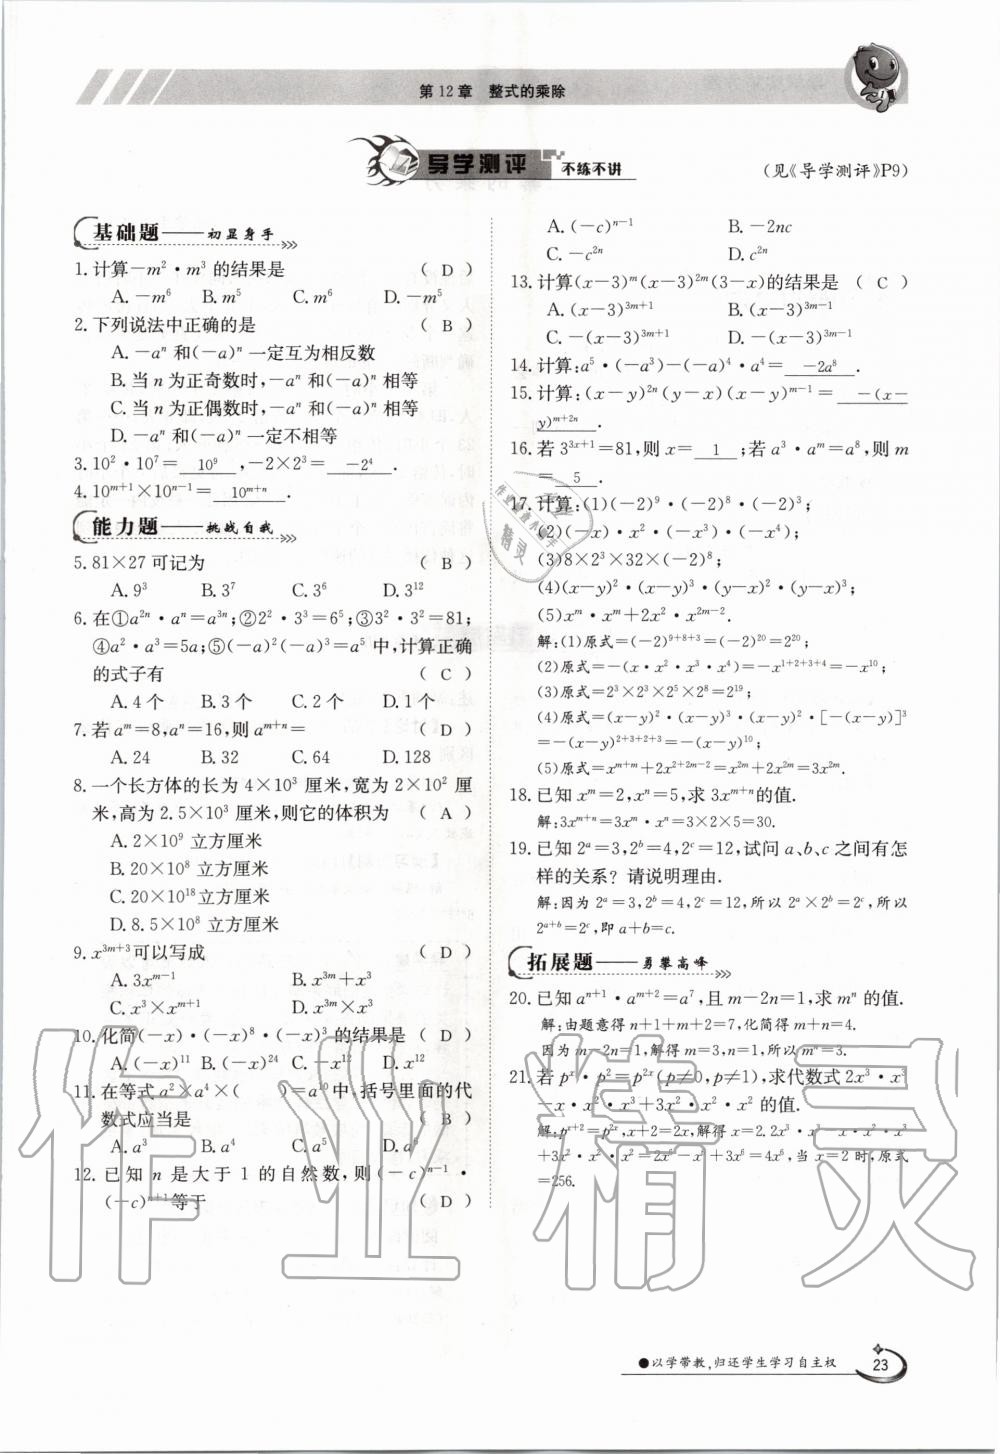 第12章 整式的乘除
导学测评 不练不讲
(见《导学测评》P9)
基础题——初显身手
1.计算-m²·m³的结果是 ( D )
A.-m⁶ B.m⁵ C.m⁶ D.-m⁵
2.下列说法中正确的是 ( B )
A.-aⁿ和(-a)ⁿ一定互为相反数
B.当n为正奇数时,-aⁿ和(-a)ⁿ相等
C.当n为正偶数时,-aⁿ和(-a)ⁿ相等
D.-aⁿ和(-a)ⁿ一定不相等
3.10²·10⁷= 10⁹ ,-2×2³= -2⁴ .
4.10^{m+1}×10^{n-1}= 10^{m+n} .
能力题——挑战自我
5.81×27可记为 ( B )
A.9³ B.3⁷ C.3⁶ D.3¹²
6.在①a^{2n}·aⁿ=a^{3n};②2²·3³=6⁵;③3²·3²=81;
④a²·a³=5a;⑤(-a)²(-a)³=a⁵中,计算正确
的式子有 ( C )
A.4个 B.3个 C.2个 D.1个
7.若a^m=8,aⁿ=16,则a^{m+n}= ( D )
A.24 B.32 C.64 D.128
8.一个长方体的长为4×10³厘米,宽为2×10²厘
米,高为2.5×10³厘米,则它的体积为 ( A )
A.2×10⁹立方厘米
B.20×10⁸立方厘米
C.20×10¹⁸立方厘米
D.8.5×10⁸立方厘米
9.x^{3m+3}可以写成 ( D )
A.3x^{m-1} B.x^{3m}+x³
C.x³×x^{m+1} D.x^{3m}×x³
10.化简(-x)·(-x)⁸·(-x)³的结果是 ( D )
A.(-x)¹¹ B.(-x)²⁴ C.-x¹² D.x¹²
11.在等式a²×a⁴×( )=a¹⁰中,括号里面的代
数式应当是 ( B )
A.a³ B.a⁴ C.a⁵ D.a⁶
12.已知n是大于1的自然数,则(-c)^{n-1}·
(-c)^{n+1}等于 ( D )
A.(-c)^{n-1} B.-2nc
C.-c^{2n} D.c^{2n}
13.计算(x-3)^m(x-3)^{2m}(3-x)的结果是 ( C )
A.(x-3)^{3m+1} B.(x-3)^{3m-1}
C.-(x-3)^{3m+1} D.-(x-3)^{3m-1}
14.计算:a⁵·(-a³)-(-a)⁴·a⁴= -2a⁸ .
15.计算:(x-y)^{2n}(y-x)(x-y)^{m-1}= -(x-
y)^{m+2n} .
16.若3^{3x+1}=81,则x= 1 ;若a³·a^m=a⁸,则m
= 5 .
17.计算:(1)(-2)⁹·(-2)⁸·(-2)³;
(2)(-x)·x²·(-x³)·(-x⁴);
(3)8×2³×32×(-2)⁸;
(4)(x-y)²·(x-y)³·(y-x)²·(y-x)³;
(5)x^m·x^m+2x²·x^{2m-2}.
解:(1)原式=(-2)^{9+8+3}=(-2)²⁰=2²⁰;
(2)原式=-(x·x²·x³·x⁴)=-x^{1+2+3+4}=-x¹⁰;
(3)原式=2³×2³×2⁵×2⁸=2¹⁹;
(4)原式=(x-y)²·(x-y)³·(x-y)²·[-(x-y)]³
=-(x-y)^{2+3+2+3}=-(x-y)¹⁰;
(5)原式=x^{m+m}+2x^{2+2m-2}=x^{2m}+2x^{2m}=3x^{2m}.
18.已知x^m=2,xⁿ=5,求3x^{m+n}的值.
解:3x^{m+n}=3x^m·xⁿ=3×2×5=30.
19.已知2^a=3,2^b=4,2^c=12,试问a、b、c之间有怎
样的关系?请说明理由.
解:因为2^a=3,2^b=4,2^c=12,所以2^a×2^b=2^c,所以
2^{a+b}=2^c,即a+b=c.
拓展题——勇攀高峰
20.已知a^{n+1}·a^{m+2}=a⁷,且m-2n=1,求mⁿ的值.
解:由题意得n+1+m+2=7,化简得m+n=4.
因为m-2n=1,解得m=3,n=1,所以mⁿ=3.
21.若p^x·p²=p^{2x}(p≠0,p≠1),求代数式2x³·x³
-x·x²·x³+3x²·x²·x²的值.
解:p^{x+2}=p^{2x},x+2=2x,解得x=2.2x³·x³-x·x²·x³
+3x²·x²·x²=2x⁶-x⁶+3x⁶=4x⁶,当x=2时,原式
=256.
作业精灵
●以学带教,归还学生学习自主权
23